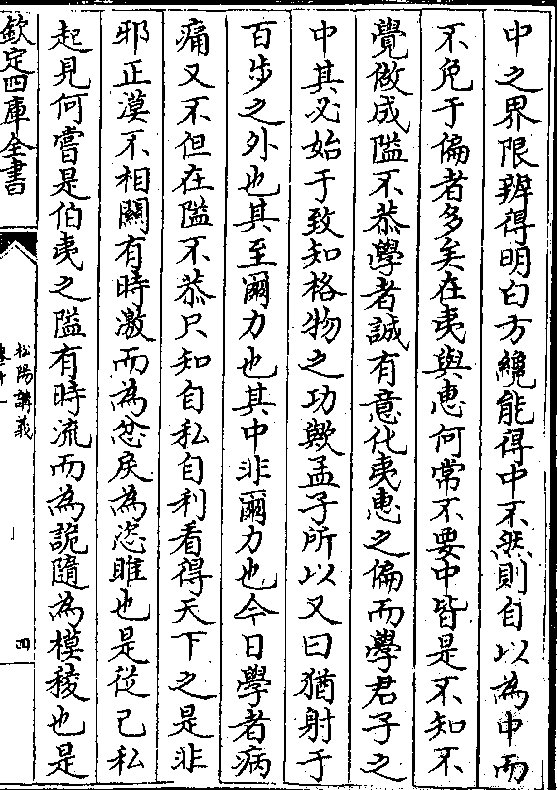 中之界限辨得明白方纔能得中不然則自以為中而
不免于偏者多矣在夷與惠何常不要中皆是不知不
覺做成隘不恭學者誠有意化夷惠之偏而學君子之
中其必始于致知格物之功歟孟子所以又曰猶射于
百步之外也其至爾力也其中非爾力也今日學者病
痛又不但在隘不恭只知自私自利看得天下之是非
邪正漠不相關有時激而為忿戾為恣睢也是從己私
起見何嘗是伯夷之隘有時流而為詭隨為模稜也是
欽定四庫全書
松陽講義
四